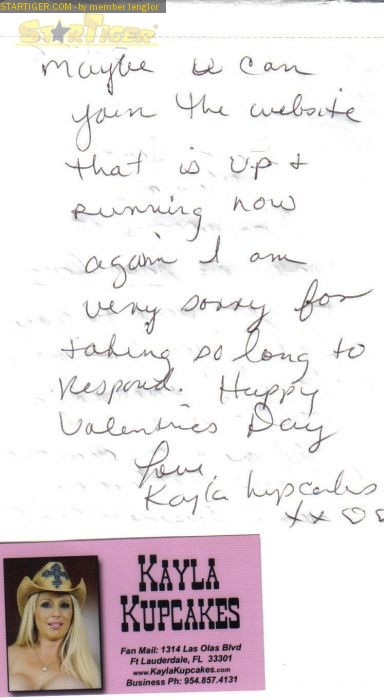 STARTIGER.COM - by member lenglor
STARTIGER
Maybe u can
join the website
that is up &
running now
again I am
very sorry for
taking so long to
respond. Happy
Valentines Day
Love,
Kayla Kupcakes
xx
KAYLA
KUPCAKES
Fan Mail: 1314 Las Olas Blvd
Ft Lauderdale, FL 33301
www.KaylaKupcakes.com
Business Ph: 954.857.4131